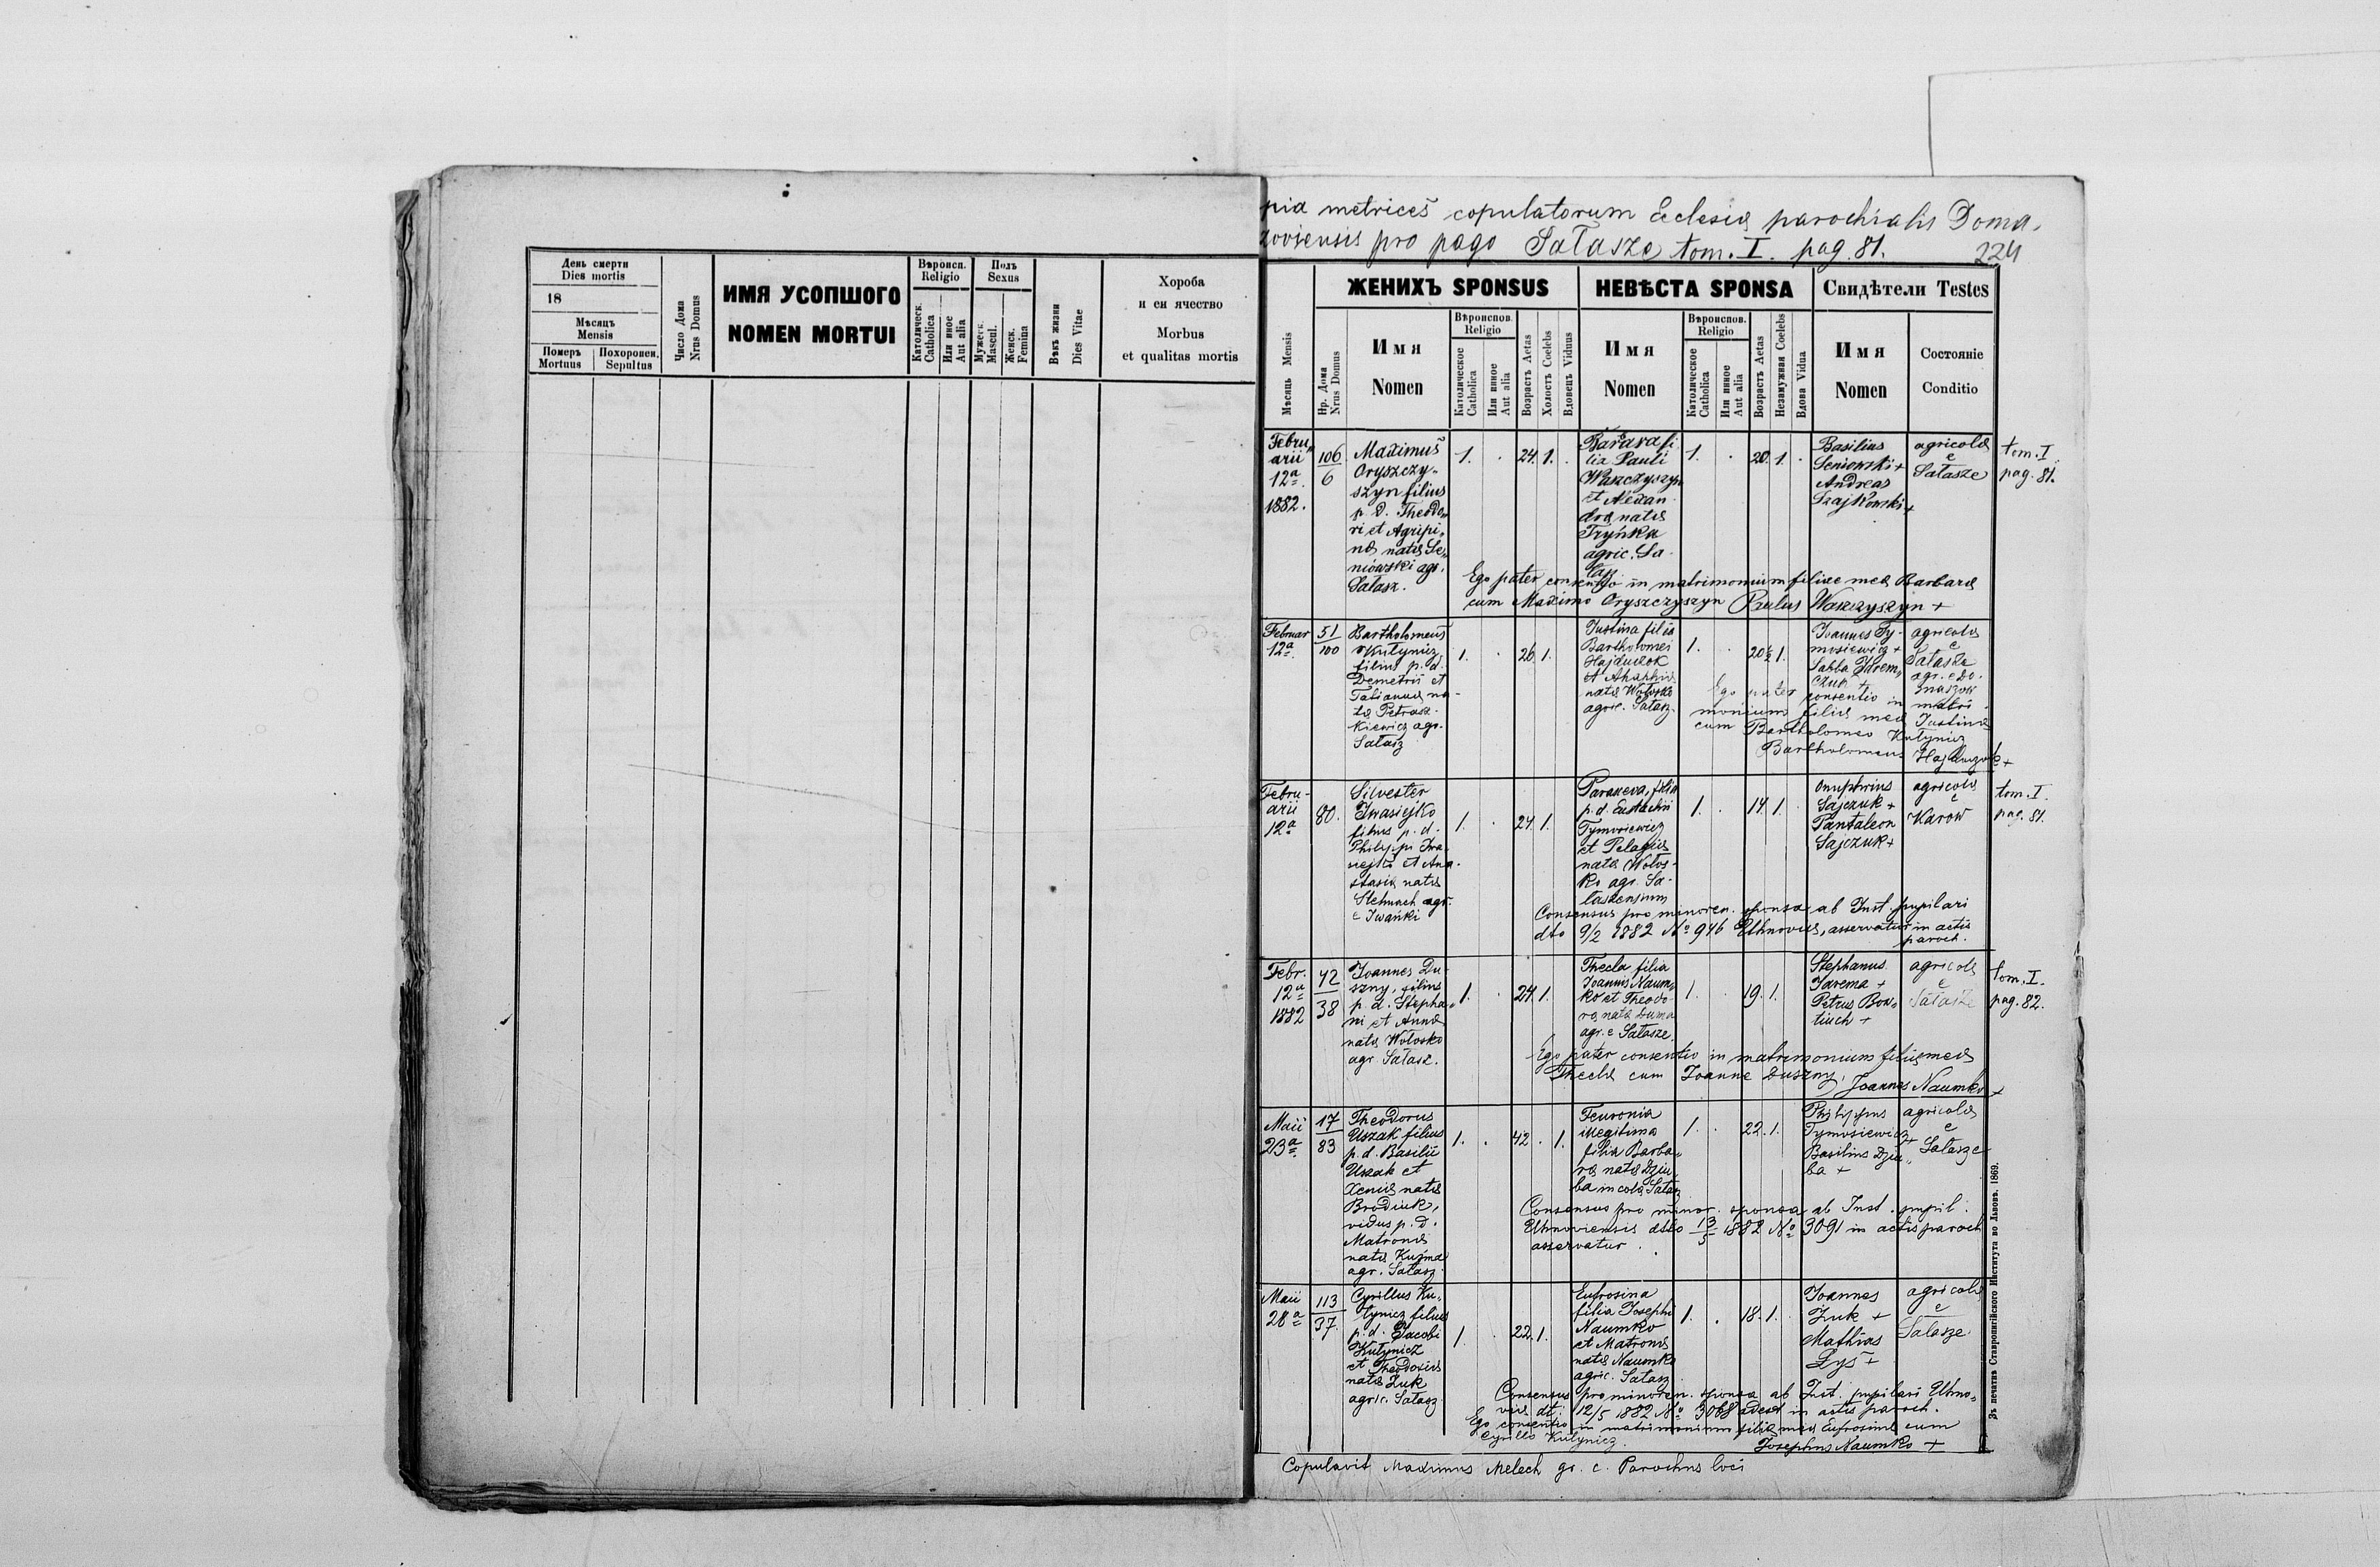 День смерти
Dies mortis
18
Мѣсяцъ
Mensis
Померъ
Mortuus
Похоронен.
Sepultus
Число Дома
Nrus Domus
ИМЯ УСОПШОГО
NOMEN MORTUI
Вѣроисп.
Religio
Католическ.
Catholica
Или иное
Aut alia
Полъ
Sexus
Мужеск.
Mascul.
Женск.
Femina
Вѣкъ жизни
Dies Vitae
Хороба
и еи ячество
Morbus
et qualitas mortis
pia metrices copulatorum Ecclesiæ parochialis Doma-
zoviensis pro pago Sałasze tom. I. pag. 81.
224
Мѣсяць Mensis
Нр. Дома
Nrus Domus
ЖЕНИХЪ SPONSUS
Имя
Nomen
Вѣроиспов.
Religio
Католическое
Catholica
Или иное
Aut alia
Возрастъ Aetas
Холостъ Coelebs
Вдовецъ Viduus
НЕВѢСТА SPONSA
Имя
Nomen
Вѣроиспов.
Religio
Католическое
Catholica
Или иное
Aut alia
Возрастъ Aetas
Незамужная Coelebs
Вдова Vidua
Свидѣтели Testes
Имя
Nomen
Состояніе
Conditio
Febru„
arii
12ª
1882.
106
6
Maximus
Oryszczy„
szyn filius
p. d. Theodo„
ri et Agripi„
næ natæ Se„
niowski agr.
Sałasz.
1.
24
1.
Barbara fi
lia Pauli
Waszczyszyn
et Alexan
dræ natæ
Tryńka
agric. Sa-
łasz
1.
20
1.
Basilius
Seniowski +
Andreas
Szajkowski +
agricolæ
e
Sałasze
tom. I.
pag. 81.
Ego pater consentio in matrimonium filiae meæ Barbaræ
cum Maximo Oryszczyszyn Paulus Waszczyszyn +
Februar
12ª
51
100
Bartholomeus
Kułynicz
filius p. d.
Demetrii et
Tatiannæ na-
tæ Petrasz-
kiewicz agr.
Sałasz
1.
26
1.
Justina filia
Bartholomei
Hajduczok
et Ahaphiæ
natæ Wołosko
agric. Sałasz.
1.
20½
1.
Joannes Ty-
mosiewicz +
Sabba Jarem„
czuk +
agricolæ
e
Sałasze
agr. e Do-
maszow
Ego pater consentio in matri-
monium filiæ meæ Justinæ
cum Bartholomeo Kułynicz
Bartholomeus Hajduczok +
Febru-
arii
12ª
80.
Silvester
Iwasiejko
filius p. d.
Philippi Iwa
siejko et Ana-
stasiæ natæ
Stelmach agr.
e Iwańki
1.
24
1.
Parasceva, filia
p. d. Eustachii
Tymosiewicz
et Pelagiæ
natæ Wołos-
ko agr. Sa-
łaszensium
1.
17
1.
Onuphrius
Sajczuk +
Pantaleon
Sajczuk +
agricolæ
e
Karow
tom. I.
pag. 81.
Consensus pro minoren. sponsa ab Inst. pupilari
dto 9/2 1882 Nº 946 Uhnoviæ, asservatur in actis
paroch.
Febr.
12ª
1882
72
38
Joannes Du-
szny, filius
p. d. Stepha„
ni et Annæ
natæ Wołosko
agr. Sałasz.
1.
24
1.
Thecla filia
Joannis Naum„
ko et Theodo-
ræ natæ Duma
agr. e Sałasze.
1.
19.
1.
Stephanus
Jarema +
Petrus Bow„
tiuch +
agricolæ
e
Sałasze
tom. I.
pag. 82.
Ego pater consentio in matrimonium filiæ meæ
Theclæ cum Joanne Duszny, Joannes Naumko +
Maii
23ª
17
83
Theodorus
Uszak filius
p. d. Basilii
Uszak et
Xeniæ natæ
Brodiuk,
vidus p. d.
Matronæ
natæ Kuźma
agr. Sałasz.
1.
42
1.
Feuronia
illegitima
filia Barba„
ræ natæ Dziu„
ba incolæ Sałasz
1.
22.
1.
Philippus
Tymosiewicz +
Basilius Dziu„
ba +
agricolæ
e
Sałasze
Consensus pro minor. sponsa ab Inst. pupil.
Uhnoviensis dtto 13/5 1882 Nº 3091 in actis paroch
asservatur.
Maii
28ª
113
37.
Cyrillus Ku„
łynicz filius
p. d. Jacobi
Kułynicz
et Theodosiæ
natæ Żuk
agric. Sałasz
1.
22.
1.
Eufrosina
filia Josephi
Naumko
et Matronæ
natæ Naumko
agric. Sałasz
1.
18.
1.
Joannes
Żuk +
Mathias
Lys +
agricolæ
e
Sałasze
Consensus pro minoren. sponsa ab Inst. pupilari Uhno„
viæ dt. 12/5 1882 Nº 3068 adest in actis paroch.
Ego consentio in matrimonium filiæ meæ Eufrosinæ cum
Cyrillo Kułynicz. Josephus Naumko +
Copulavit Maximus Melech gr. c. Parochus loci
Зъ печатнѣ Ставропигійского Института во Львовѣ. 1869.